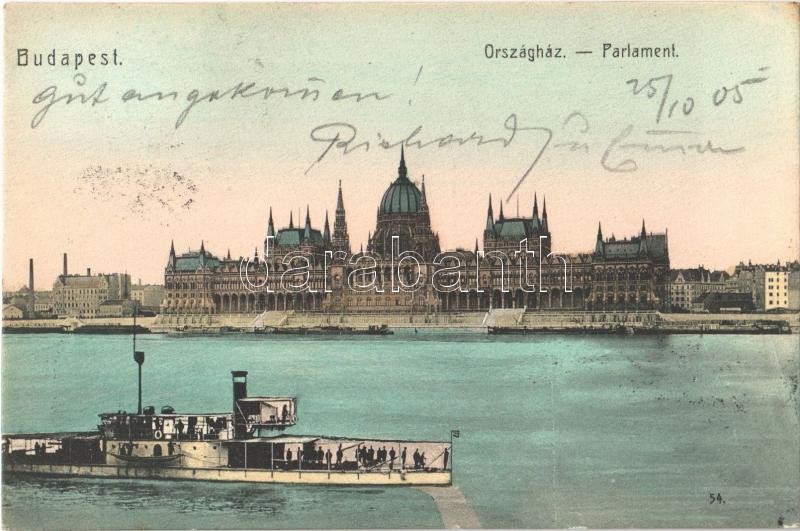 Budapest.
Országház. — Parlament.
gut angekommen!
25/10 05
Richard
darabanth
54.